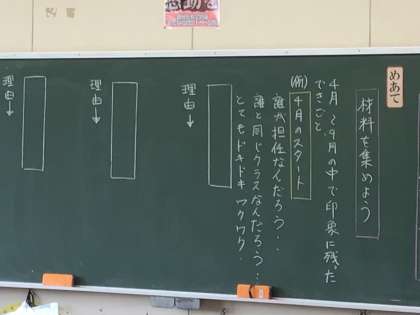 感動を
めあて
材料を集めよう
4月〜9月の中で印象に残った
できごと
(例)
4月のスタート
誰が担任なんだろう・・
誰と同じクラスなんだろう・・
とてもドキドキ ワクワク・
理由→
理由→
理由→